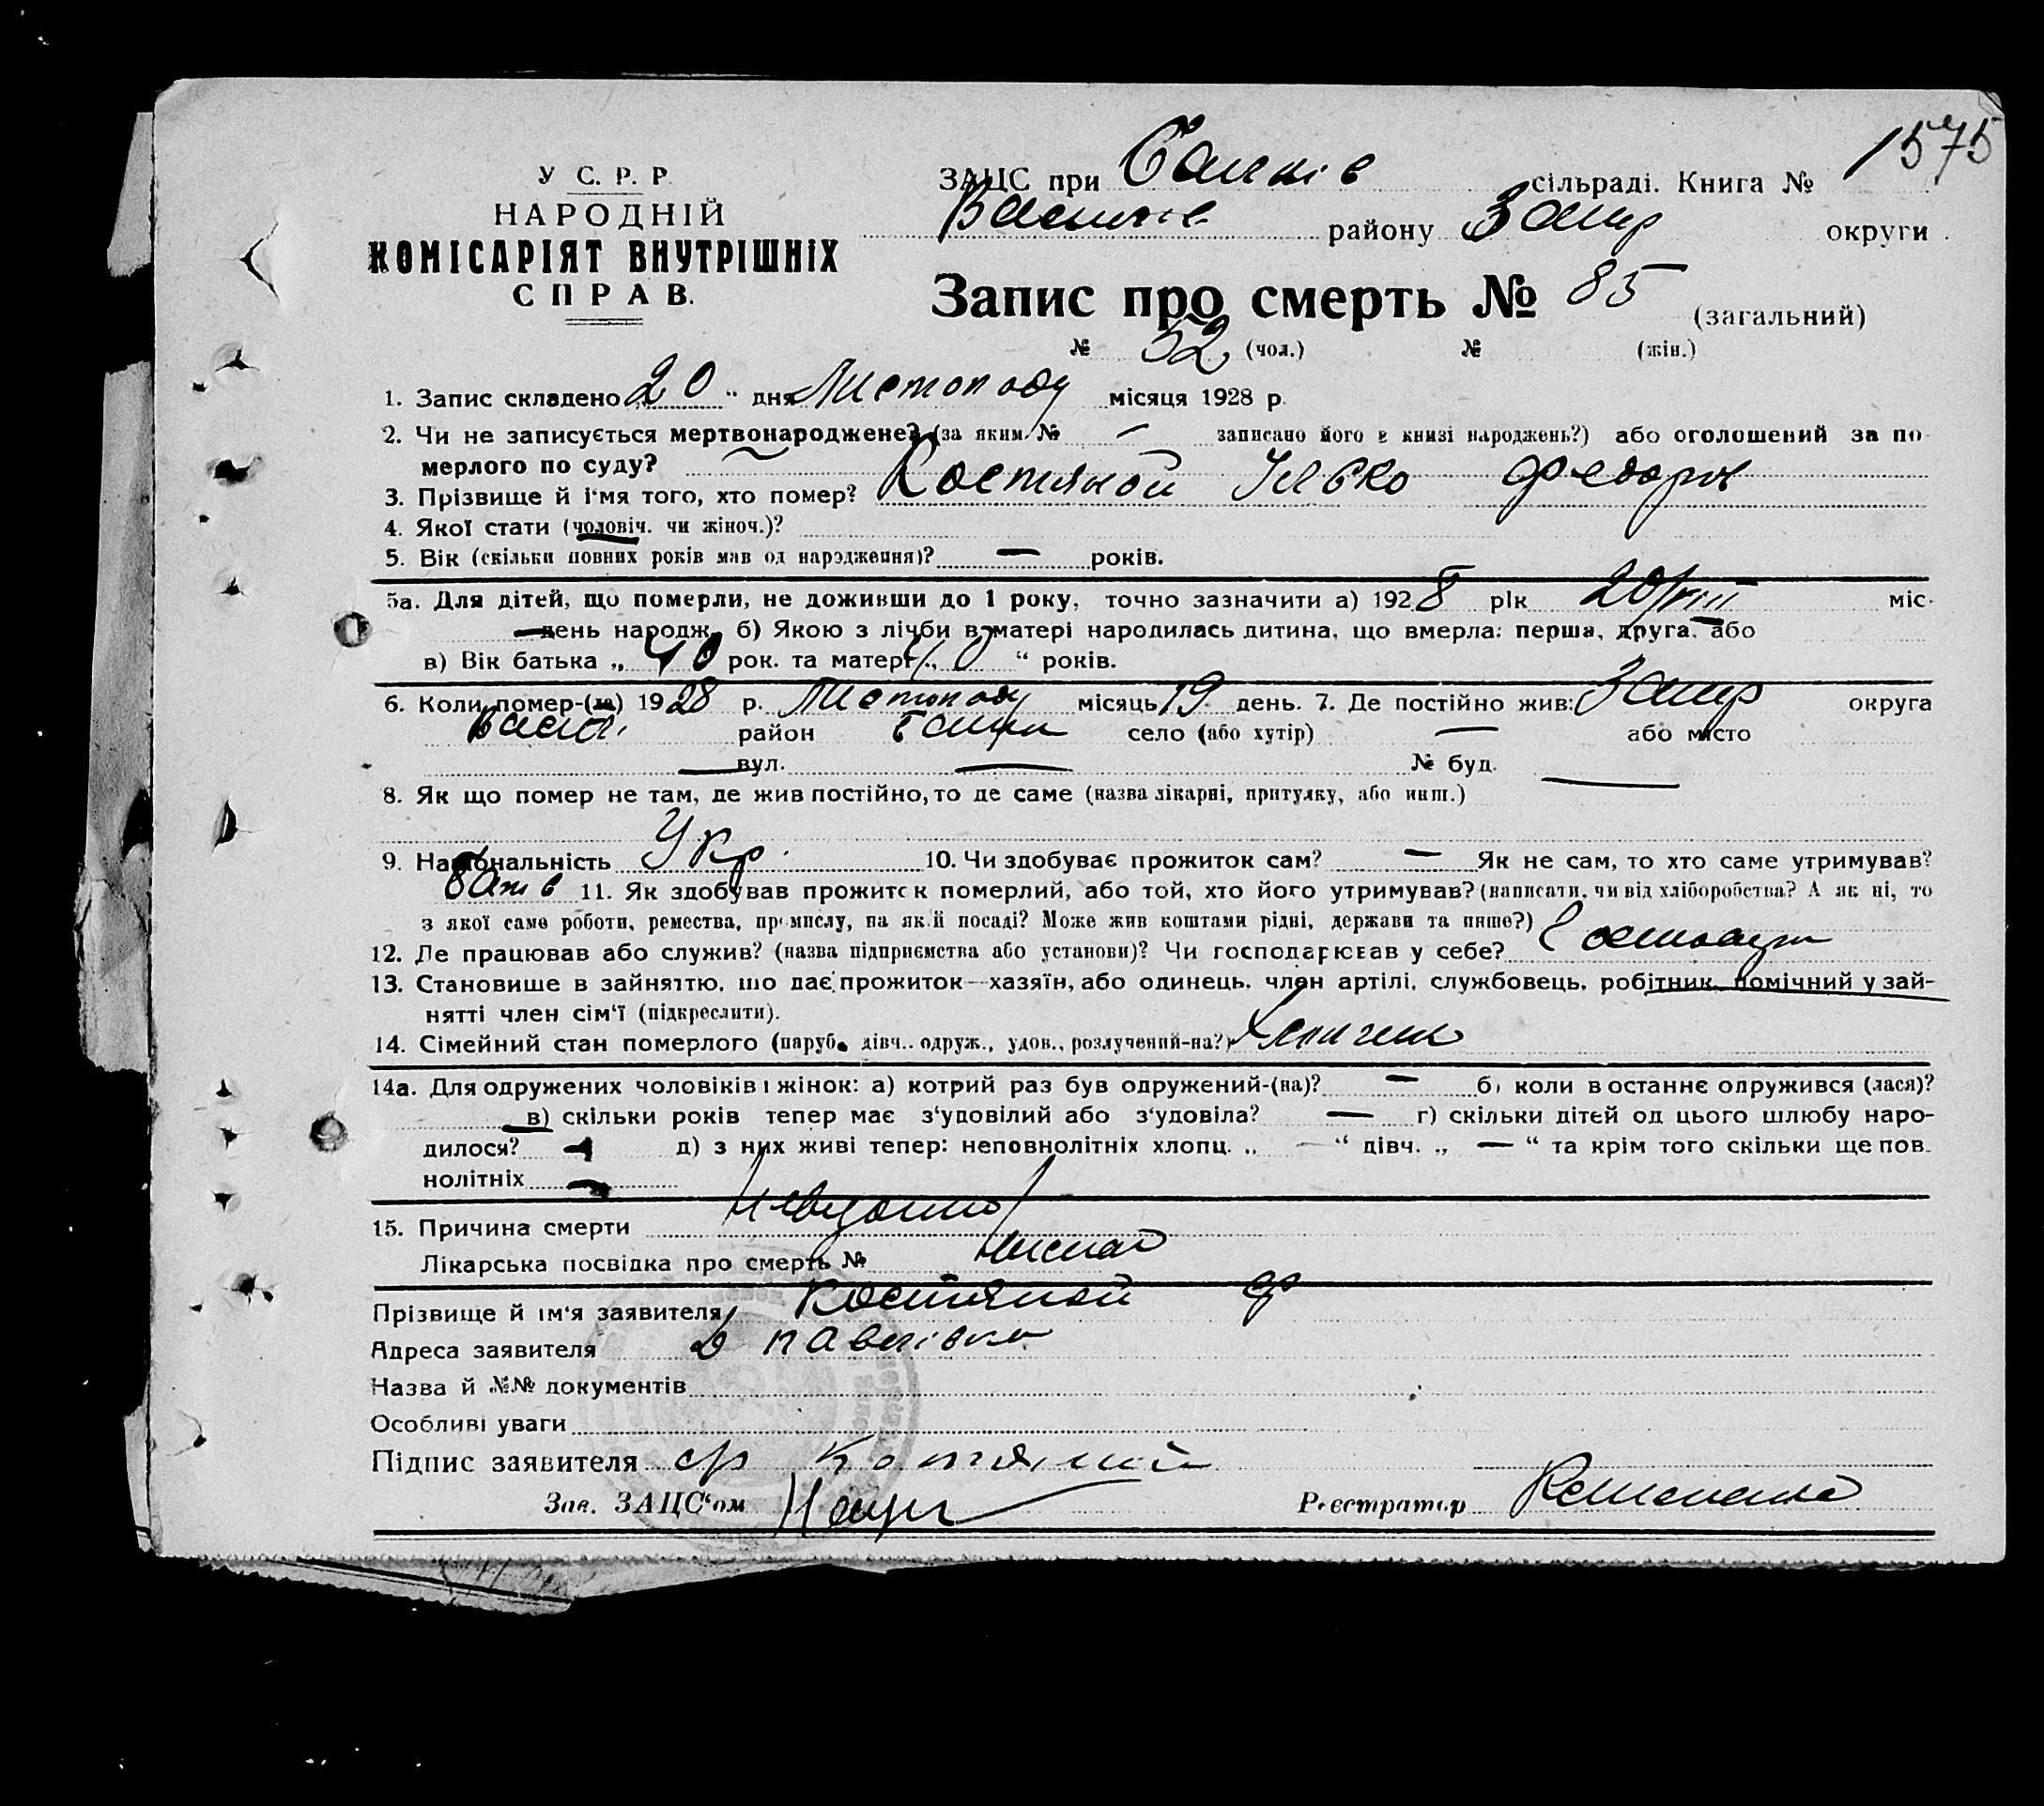 1575
У С. Р. Р.
НАРОДНІЙ
КОМІСАРІЯТ ВНУТРІШНІХ
СПРАВ.
ЗАЦС при сільраді. Книга №
району Запр округи
Запис про смерть № 85 (загальний)
№ 52 (чол.) № (жін.)
1. Запис складено „20“ дня Листопаду місяця 1928 р.
2. Чи не записується мертвонароджене? (за яким № — записано його в книзі народжень?) або оголошений за по-
мерлого по суду?
3. Прізвище й ім'я того, хто помер? Костяной Ілько Федоров
4. Якої стати (чоловіч. чи жіноч.)?
5. Вік (скільки повних років мав од народження)? — років.
5а. Для дітей, що померли, не доживши до 1 року, точно зазначити а) 1928 рік 20/VIII міс.
— день народж. б) Якою з лічби в матері народилась дитина, що вмерла: перша, друга, або
в) Вік батька „40 рок. та матері „40“ років.
6. Коли помер-(ла) 1928 р. Листопаду місяць 19 день. 7. Де постійно жив: Запр округа
район село (або хутір) — або місто
— вул. — № буд. —
8. Як що помер не там, де жив постійно, то де саме (назва лікарні, притулку, або инш.)
9. Національність Укр. 10. Чи здобуває прожиток сам? — Як не сам, то хто саме утримував?
батв 11. Як здобував прожиток померлий, або той, хто його утримував? (написати, чи від хліборобства? А як ні, то
з якої саме роботи, ремества, промислу, на якій посаді? Може жив коштами рідні, держави та инше?)
12. Де працював або служив? (назва підприємства або установи)? Чи господарював у себе?
13. Становище в зайняттю, що дає прожиток—хазяїн, або одинець, член артілі, службовець, робітник, помічний у зай-
нятті член сім'ї (підкреслити).
14. Сімейний стан померлого (паруб., дівч., одруж., удов., розлучений-на?)
14а. Для одружених чоловіків і жінок: а) котрий раз був одружений-(на)? — б) коли в останнє одружився (лася)?
— в) скільки років тепер має з'удовілий або з'удовіла? — г) скільки дітей од цього шлюбу наро-
дилося? — д) з них живі тепер: неповнолітніх хлопц. „ — “ дівч. „ — “ та крім того скільки ще пов-
нолітніх —
15. Причина смерти
Лікарська посвідка про смерть № немає
Прізвище й ім'я заявителя Костяной Ф
Адреса заявителя Д Павлівка
Назва й №№ документів
Особливі уваги
Підпис заявителя Ф Котяний
Зав. ЗАЦС'ом Реєстратор